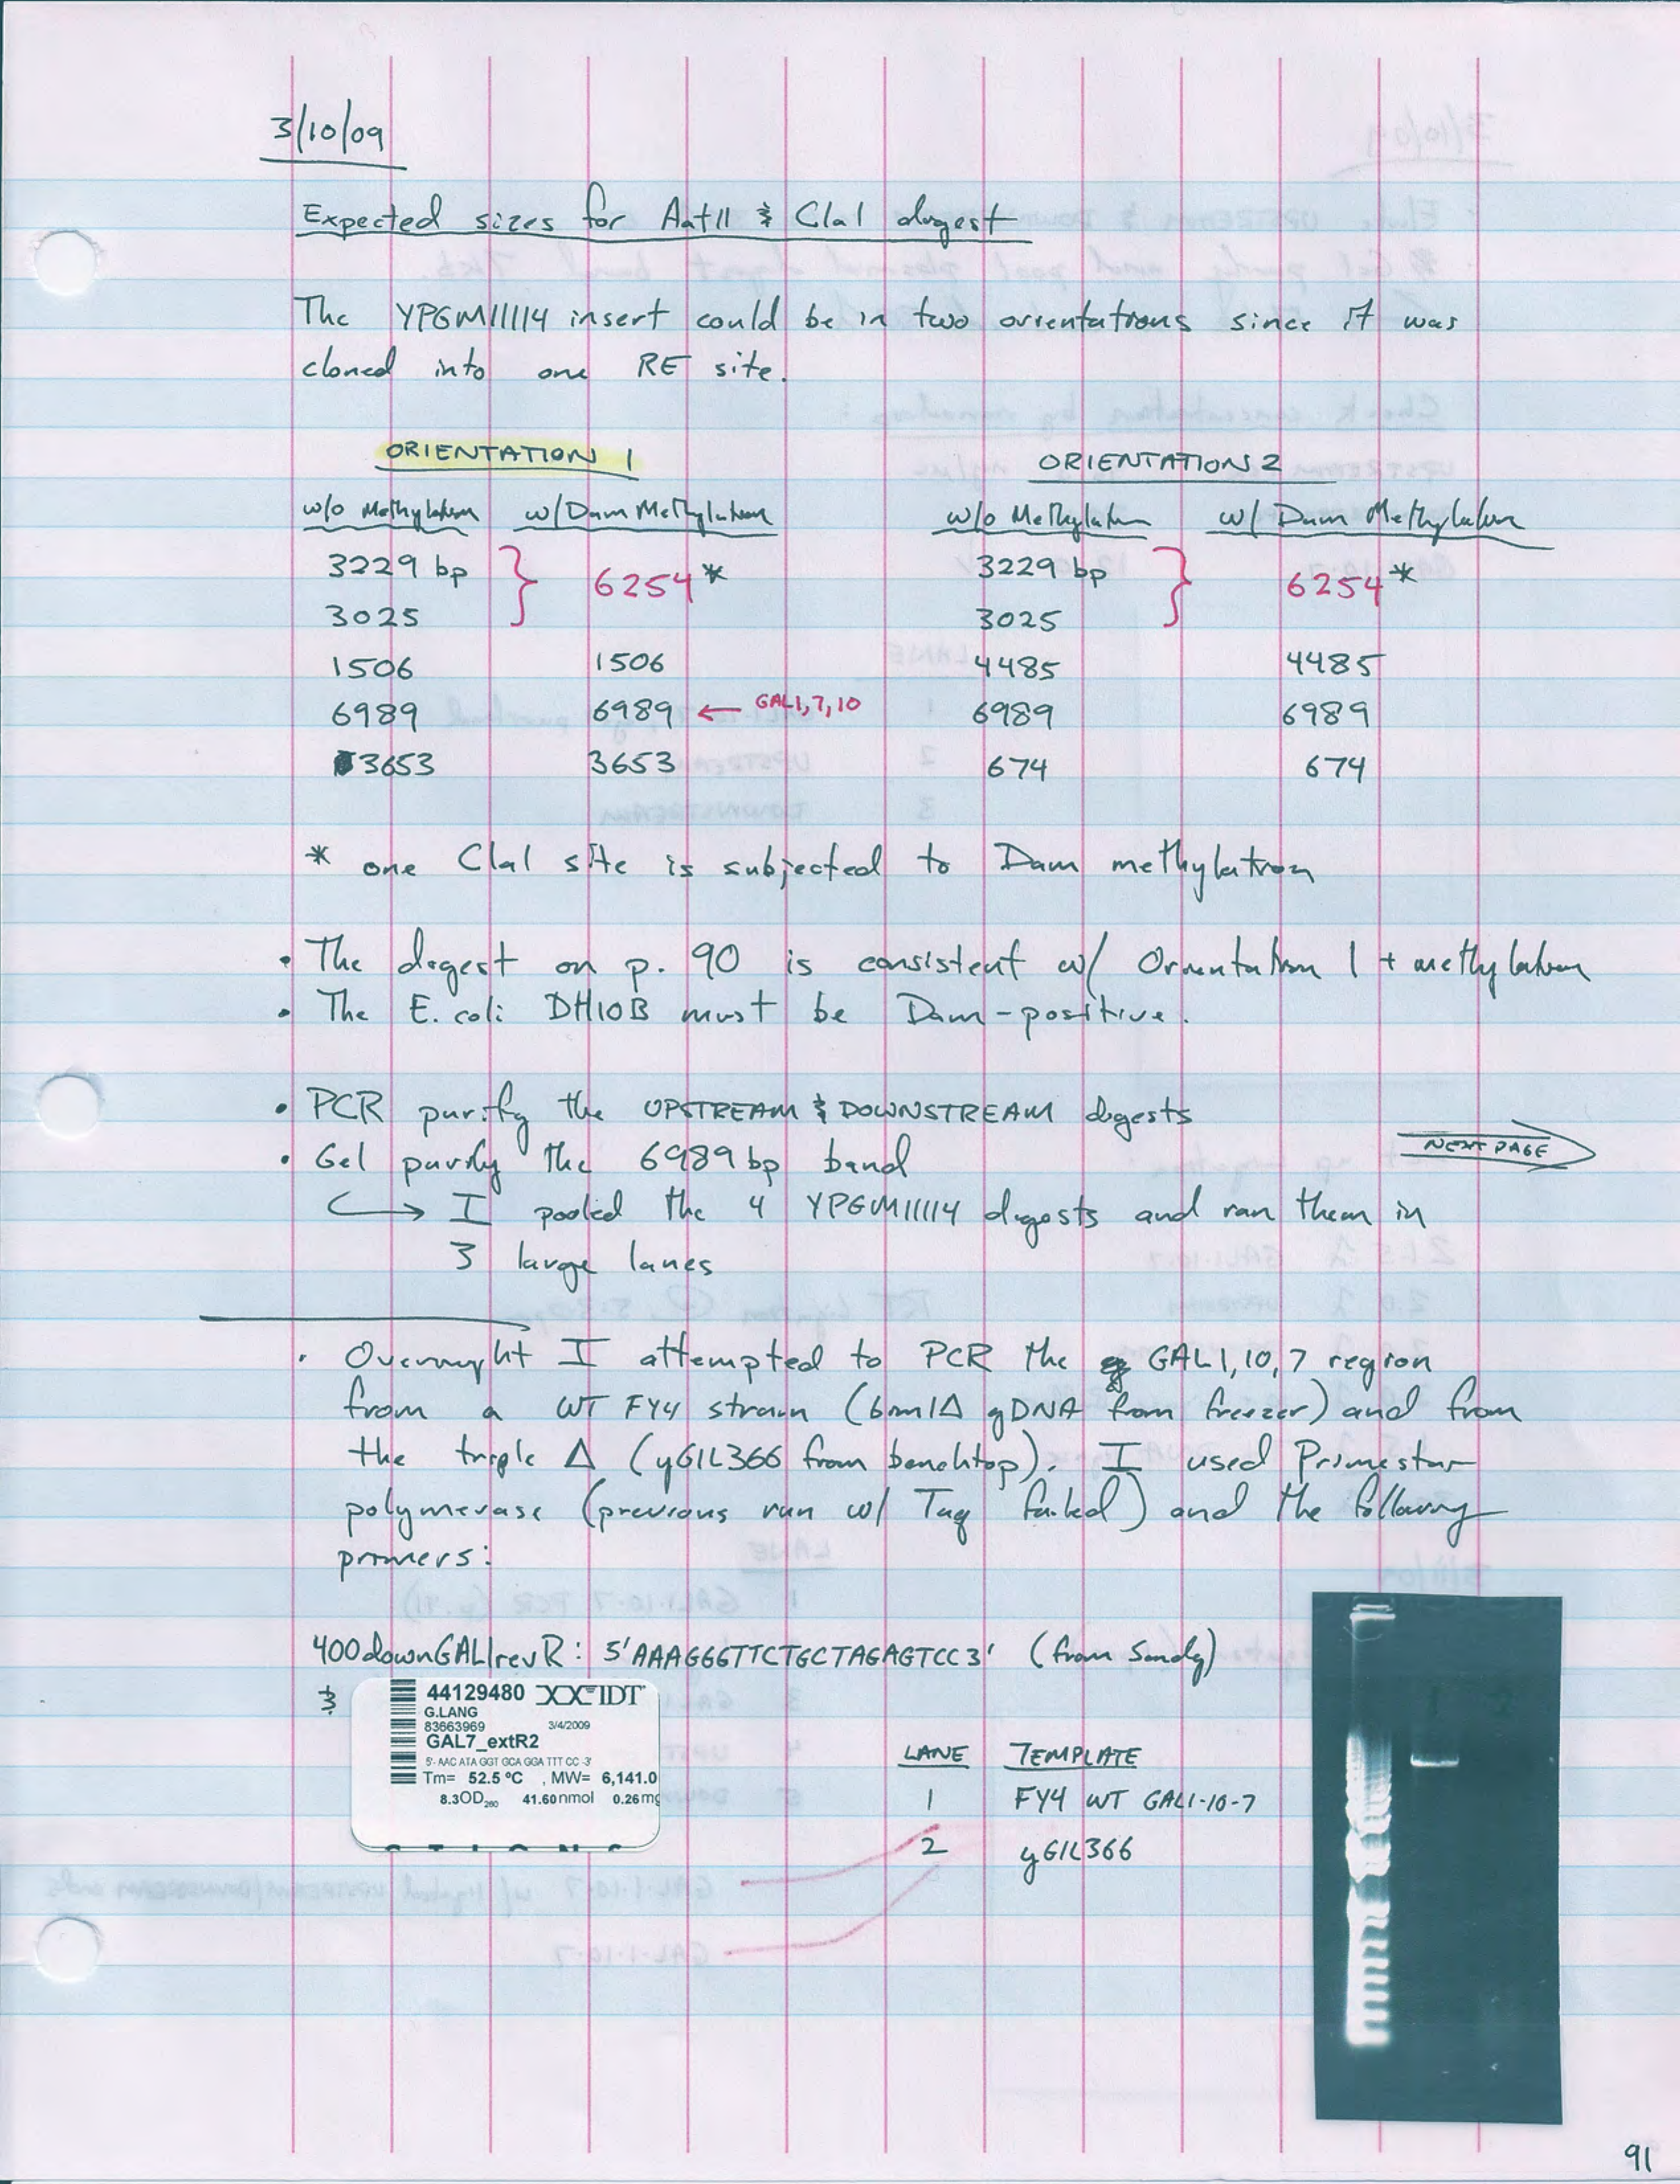 3/10/09
Expected sizes for AatII & ClaI digest
The YPGM11114 insert could be in two orientations since it was
cloned into one RE site.
ORIENTATION 1 ORIENTATION 2
w/o Methylation w/ Dam Methylation w/o Methylation w/ Dam Methylation
3229 bp } 6254* 3229 bp } 6254*
3025 3025
1506 1506 4485 4485
6989 6989 ← GAL1,7,10 6989 6989
3653 3653 674 674
* one ClaI site is subjected to Dam methylation
• The digest on p. 90 is consistent w/ Orientation 1 + methylation
• The E. coli DH10B must be Dam-positive.
• PCR purify the UPSTREAM & DOWNSTREAM digests
• Gel purify the 6989 bp band
NEXT PAGE
↳ I pooled the 4 YPGM11114 digests and ran them in
3 large lanes
• Overnight I attempted to PCR the GAL1,10,7 region
from a WT FY4 strain (bm1Δ gDNA from freezer) and from
the triple Δ (yGIL366 from benchtop). I used Primestar
polymerase (previous run w/ Taq failed) and the following
primers:
400downGAL1revR: 5'AAAGGGTTCTGCTAGAGTCC3' (from Sandy)
&
44129480 IDT
G.LANG
83663969 3/4/2009
GAL7_extR2
5'- AAC ATA GGT GCA GGA TTT CC -3'
Tm= 52.5 ºC , MW= 6,141.0
8.3OD260 41.60nmol 0.26mg
LANE TEMPLATE
1 FY4 WT GAL1-10-7
2 yGIL366
1 2
91